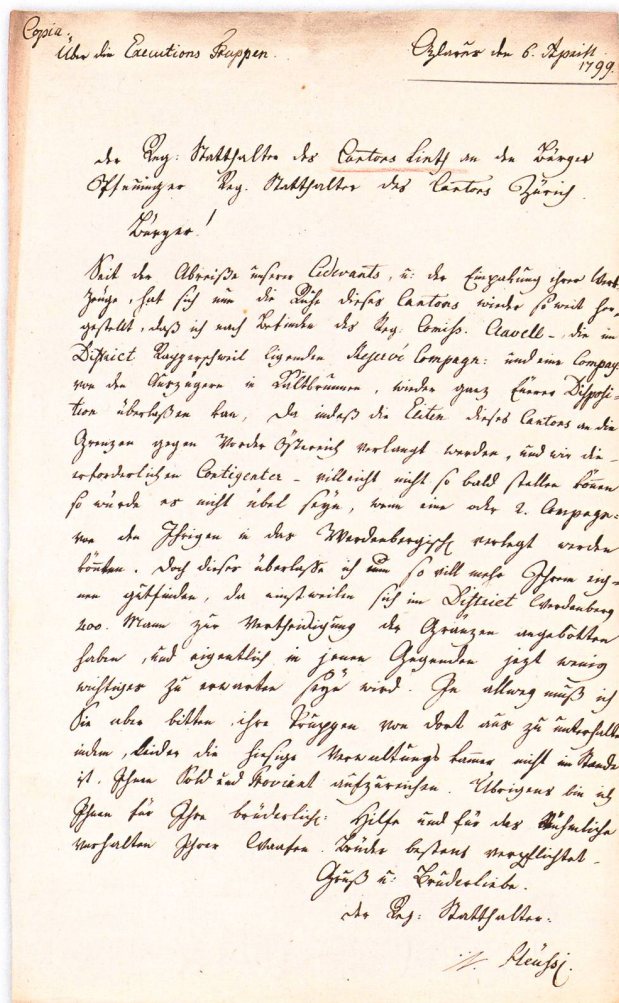 Copia.
Über die Executions Truppen.
Glarus den 6. Aprill
1799.
der Reg: Statthalter des Cantons Linth an den Bürger
Pfenninger Reg. Statthalter des Cantons Zürich.
Bürger!
Seit der Abreiße unserer Cidevants, u: der Einpakung ihrer Werk-
zeüge, hat sich nun die Ruhe dieses Cantons wieder so weit her-
gestellt, daß ich nach Befinden des Reg: Comiss. Clavell -, die im
District Rapperschweil ligenden Reserve Compagn: und eine Compag:
von den Auszügern in Kaltbrunnen, wieder ganz Eürer Disposi=
tion überlaßen kan, Da indeß die Eliten dieses Cantons an die
Grenzen gegen Vorder Östereich verlangt werden, und wir die
erforderlichen Contigenter - villeicht nicht so bald stellen können
so würde es nicht übel seyn, wenn eine oder 2. Compagn:
von den Ihrigen in das Werdenbergisch verlegt werden
könten. Doch dieses überlaße ich um so vill mehr Ihrem eig=
nen gutfinden, da einstweilen sich im District Werdenberg
400. Mann zur Vertheidigung der Gränzen angebotten
haben, und eigentlich in jenen Gegenden jezt wenig
wichtiges zu erwarten seyn wird. In allweg muß ich
Sie aber bitten, ihre Truppen von dort aus zu unterhalten
indem, leider die hiesige Verwaltungs kamer nicht im Stande
ist. Ihnen Sold und Proviant aufzureichen. Übrigens bin ich
Ihnen für Ihre brüderlich: Hilfe und für das Rühmliche
verhalten Ihrer Waafen-Brüder bestens verpflichtet.
Gruß u: Bruderliebe.
der Reg: Statthalter:
Heüssi.